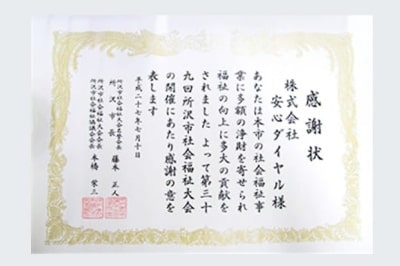 感謝状
株式会社
安心ダイヤル様
あなたは本市の社会福祉事
業に多額の浄財を寄せられ
福祉の向上に多大の貢献を
されました よって第三十
九回所沢市社会福祉大会
の開催にあたり感謝の意を
表します
平成二十七年七月十日
所沢市社会福祉大会名誉会長
所沢市長 藤本正人
所沢市社会福祉大会会長
所沢市社会福祉協議会会長 本橋栄三